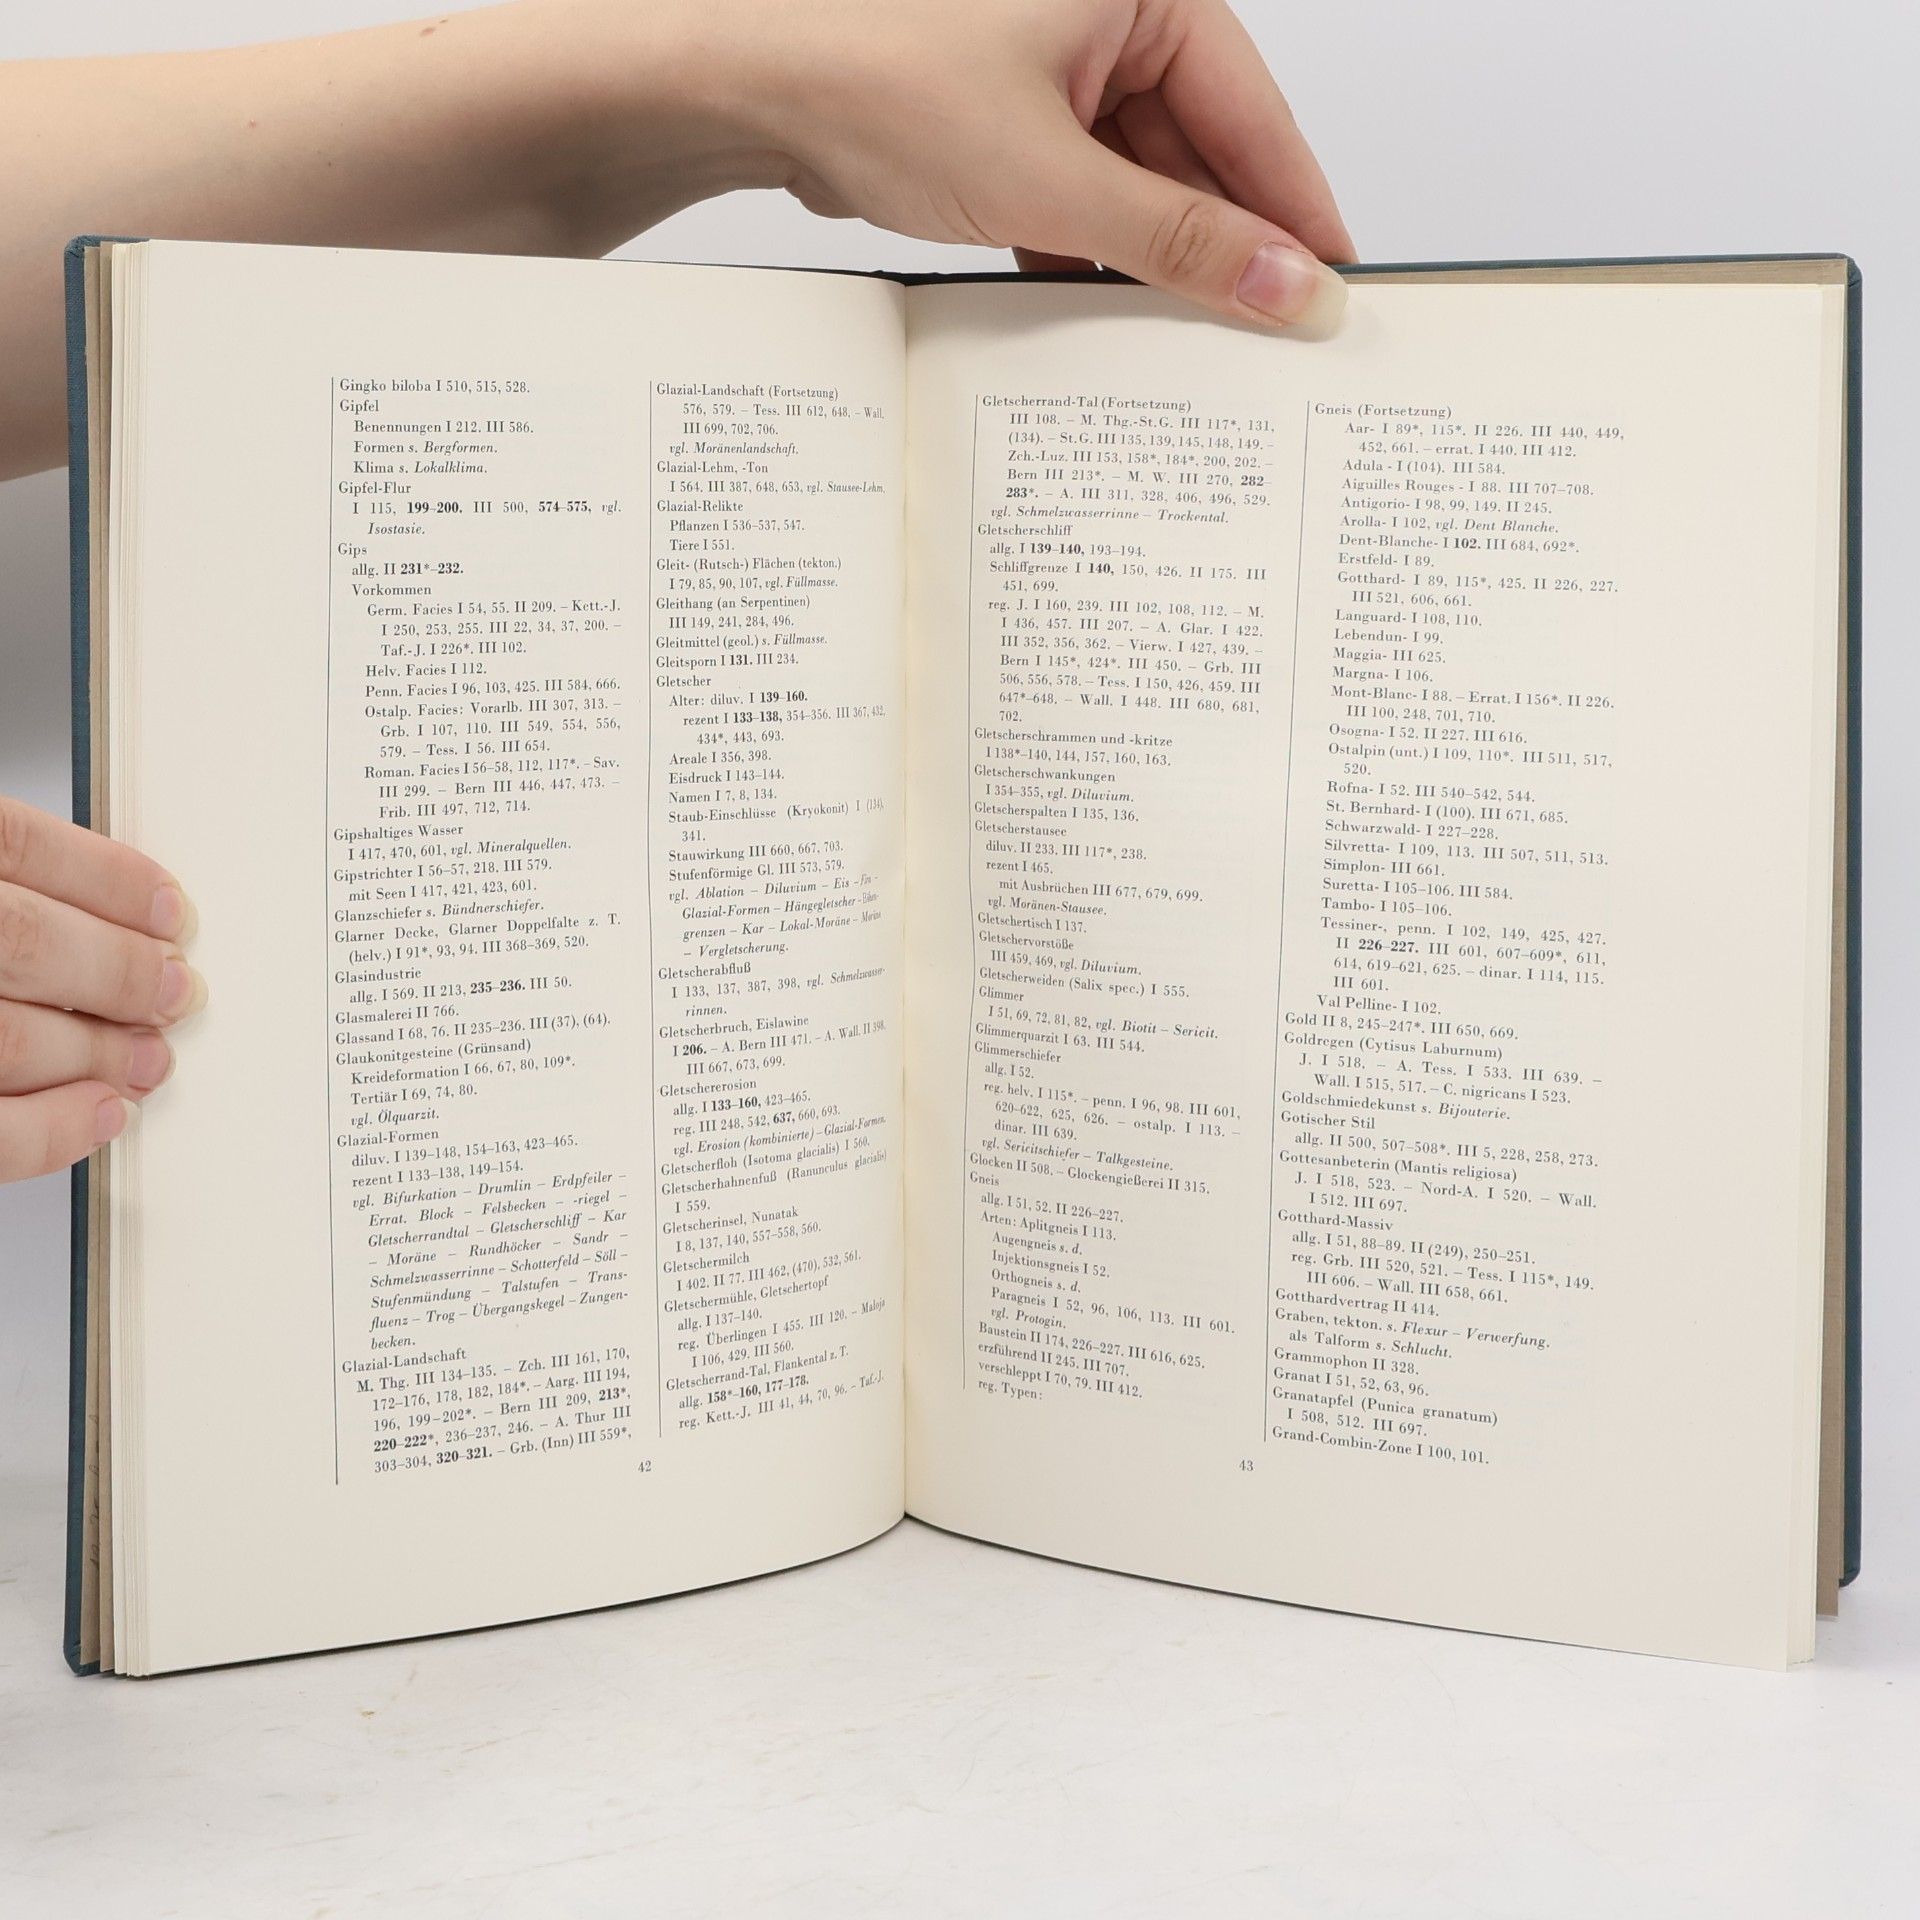 Gingko biloba I 510, 515, 528.
Gipfel
Benennungen I 212. III 586.
Formen s. Bergformen.
Klima s. Lokalklima.
Gipfel-Flur
I 115, 199–200. III 500, 574–575, vgl.
Isostasie.
Gips
allg. II 231*–232.
Vorkommen
Germ. Facies I 54, 55. II 209. – Kett.-J.
I 250, 253, 255. III 22, 34, 37, 200. –
Taf.-J. I 226*. III 102.
Helv. Facies I 112.
Penn. Facies I 96, 103, 425. III 584, 666.
Ostalp. Facies: Vorarlb. III 307, 313. –
Grb. I 107, 110. III 549, 554, 556,
579. – Tess. I 56. III 654.
Roman. Facies I 56–58, 112, 117*. – Sav.
III 299. – Bern III 446, 447, 473. –
Frib. III 497, 712, 714.
Gipshaltiges Wasser
I 417, 470, 601, vgl. Mineralquellen.
Gipstrichter I 56–57, 218. III 579.
mit Seen I 417, 421, 423, 601.
Glanzschiefer s. Bündnerschiefer.
Glarner Decke, Glarner Doppelfalte z. T.
(helv.) I 91*, 93, 94. III 368–369, 520.
Glasindustrie
allg. I 569. II 213, 235–236. III 50.
Glasmalerei II 766.
Glassand I 68, 76. II 235–236. III (37), (64).
Glaukonitgesteine (Grünsand)
Kreideformation I 66, 67, 80, 109*.
Tertiär I 69, 74, 80.
vgl. Ölquarzit.
Glazial-Formen
diluv. I 139–148, 154–163, 423–465.
rezent I 133–138, 149–154.
vgl. Bifurkation – Drumlin – Erdpfeiler –
Errat. Block – Felsbecken – -riegel –
Gletscherrandtal – Gletscherschliff – Kar
– Moräne – Rundhöcker – Sandr –
Schmelzwasserrinne – Schotterfeld – Söll –
Stufenmündung – Talstufen – Trans-
fluenz – Trog – Übergangskegel – Zungen-
becken.
Glazial-Landschaft
M. Thg. III 134–135. – Zch. III 161, 170,
172–176, 178, 182, 184*. – Aarg. III 194,
196, 199–202*. – Bern III 209, 213*,
220–222*, 236–237, 246. – A. Thur III
303–304, 320–321. – Grb. (Inn) III 559*,
Glazial-Landschaft (Fortsetzung)
576, 579. – Tess. III 612, 648. – Wall.
III 699, 702, 706.
vgl. Moränenlandschaft.
Glazial-Lehm, -Ton
I 564. III 387, 648, 653, vgl. Stausee-Lehm.
Glazial-Relikte
Pflanzen I 536–537, 547.
Tiere I 551.
Gleit- (Rutsch-) Flächen (tekton.)
I 79, 85, 90, 107, vgl. Füllmasse.
Gleithang (an Serpentinen)
III 149, 241, 284, 496.
Gleitmittel (geol.) s. Füllmasse.
Gleitsporn I 131. III 234.
Gletscher
Alter: diluv. I 139–160.
rezent I 133–138, 354–356. III 367, 432,
434*, 443, 693.
Areale I 356, 398.
Eisdruck I 143–144.
Namen I 7, 8, 134.
Staub-Einschlüsse (Kryokonit) I (134),
341.
Stauwirkung III 660, 667, 703.
Stufenförmige Gl. III 573, 579.
vgl. Ablation – Diluvium – Eis – Firn –
Glazial-Formen – Hängegletscher – Höhen-
grenzen – Kar – Lokal-Moräne – Moräne
– Vergletscherung.
Gletscherabfluß
I 133, 137, 387, 398, vgl. Schmelzwasser-
rinnen.
Gletscherbruch, Eislawine
I 206. – A. Bern III 471. – A. Wall. II 398.
III 667, 673, 699.
Gletschererosion
allg. I 133–160, 423–465.
reg. III 248, 542, 637, 660, 693.
vgl. Erosion (kombinierte) – Glazial-Formen.
Gletscherfloh (Isotoma glacialis) I 560.
Gletscherhahnenfuß (Ranunculus glacialis)
I 559.
Gletscherinsel, Nunatak
I 8, 137, 140, 557–558, 560.
Gletschermilch
I 402. II 77. III 462, (470), 532, 561.
Gletschermühle, Gletschertopf
allg. I 137–140.
reg. Überlingen I 455. III 120. – Maloja
I 106, 429. III 560.
Gletscherrand-Tal, Flankental z. T.
allg. 158*–160, 177–178.
reg. Kett.-J. III 41, 44, 70, 96. – Taf.-J.
42
Gletscherrand-Tal (Fortsetzung)
III 108. – M. Thg.-St.G. III 117*, 131,
(134). – St.G. III 135, 139, 145, 148, 149. –
Zch.-Luz. III 153, 158*, 184*, 200, 202. –
Bern III 213*. – M. W. III 270, 282–
283*. – A. III 311, 328, 406, 496, 529.
vgl. Schmelzwasserrinne – Trockental.
Gletscherschliff
allg. I 139–140, 193–194.
Schliffgrenze I 140, 150, 426. II 175. III
451, 699.
reg. J. I 160, 239. III 102, 108, 112. – M.
I 436, 457. III 207. – A. Glar. I 422.
III 352, 356, 362. – Vierw. I 427, 439. –
Bern I 145*, 424*. III 450. – Grb. III
506, 556, 578. – Tess. I 150, 426, 459. III
647*–648. – Wall. I 448. III 680, 681,
702.
Gletscherschrammen und -kritze
I 138*–140, 144, 157, 160, 163.
Gletscherschwankungen
I 354–355, vgl. Diluvium.
Gletscherspalten I 135, 136.
Gletscherstausee
diluv. II 233. III 117*, 238.
rezent I 465.
mit Ausbrüchen III 677, 679, 699.
vgl. Moränen-Stausee.
Gletschertisch I 137.
Gletschervorstöße
III 459, 469, vgl. Diluvium.
Gletscherweiden (Salix spec.) I 555.
Glimmer
I 51, 69, 72, 81, 82, vgl. Biotit – Sericit.
Glimmerquarzit I 63. III 544.
Glimmerschiefer
allg. I 52.
reg. helv. I 115*. – penn. I 96, 98. III 601,
620–622, 625, 626. – ostalp. I 113. –
dinar. III 639.
vgl. Sericitschiefer – Talkgesteine.
Glocken II 508. – Glockengießerei II 315.
Gneis
allg. I 51, 52. II 226–227.
Arten: Aplitgneis I 113.
Augengneis s. d.
Injektionsgneis I 52.
Orthogneis s. d.
Paragneis I 52, 96, 106, 113. III 601.
vgl. Protogin.
Baustein II 174, 226–227. III 616, 625.
erzführend II 245. III 707.
verschleppt I 70, 79. III 412.
reg. Typen:
Gneis (Fortsetzung)
Aar- I 89*, 115*. II 226. III 440, 449,
452, 661. – errat. I 440. III 412.
Adula - I (104). III 584.
Aiguilles Rouges - I 88. III 707–708.
Antigorio- I 98, 99, 149. II 245.
Arolla- I 102, vgl. Dent Blanche.
Dent-Blanche- I 102. III 684, 692*.
Erstfeld- I 89.
Gotthard- I 89, 115*, 425. II 226, 227.
III 521, 606, 661.
Languard- I 108, 110.
Lebendun- I 99.
Maggia- III 625.
Margna- I 106.
Mont-Blanc- I 88. – Errat. I 156*. II 226.
III 100, 248, 701, 710.
Osogna- I 52. II 227. III 616.
Ostalpin (unt.) I 109, 110*. III 511, 517,
520.
Rofna- I 52. III 540–542, 544.
St. Bernhard- I (100). III 671, 685.
Schwarzwald- I 227–228.
Silvretta- I 109, 113. III 507, 511, 513.
Simplon- III 661.
Suretta- I 105–106. III 584.
Tambo- I 105–106.
Tessiner-, penn. I 102, 149, 425, 427.
II 226–227. III 601, 607–609*, 611,
614, 619–621, 625. – dinar. I 114, 115.
III 601.
Val Pelline- I 102.
Gold II 8, 245–247*. III 650, 669.
Goldregen (Cytisus Laburnum)
J. I 518. – A. Tess. I 533. III 639. –
Wall. I 515, 517. – C. nigricans I 523.
Goldschmiedekunst s. Bijouterie.
Gotischer Stil
allg. II 500, 507–508*. III 5, 228, 258, 273.
Gottesanbeterin (Mantis religiosa)
J. I 518, 523. – Nord-A. I 520. – Wall.
I 512. III 697.
Gotthard-Massiv
allg. I 51, 88–89. II (249), 250–251.
reg. Grb. III 520, 521. – Tess. I 115*, 149.
III 606. – Wall. III 658, 661.
Gotthardvertrag II 414.
Graben, tekton. s. Flexur – Verwerfung.
als Talform s. Schlucht.
Grammophon II 328.
Granat I 51, 52, 63, 96.
Granatapfel (Punica granatum)
I 508, 512. III 697.
Grand-Combin-Zone I 100, 101.
43